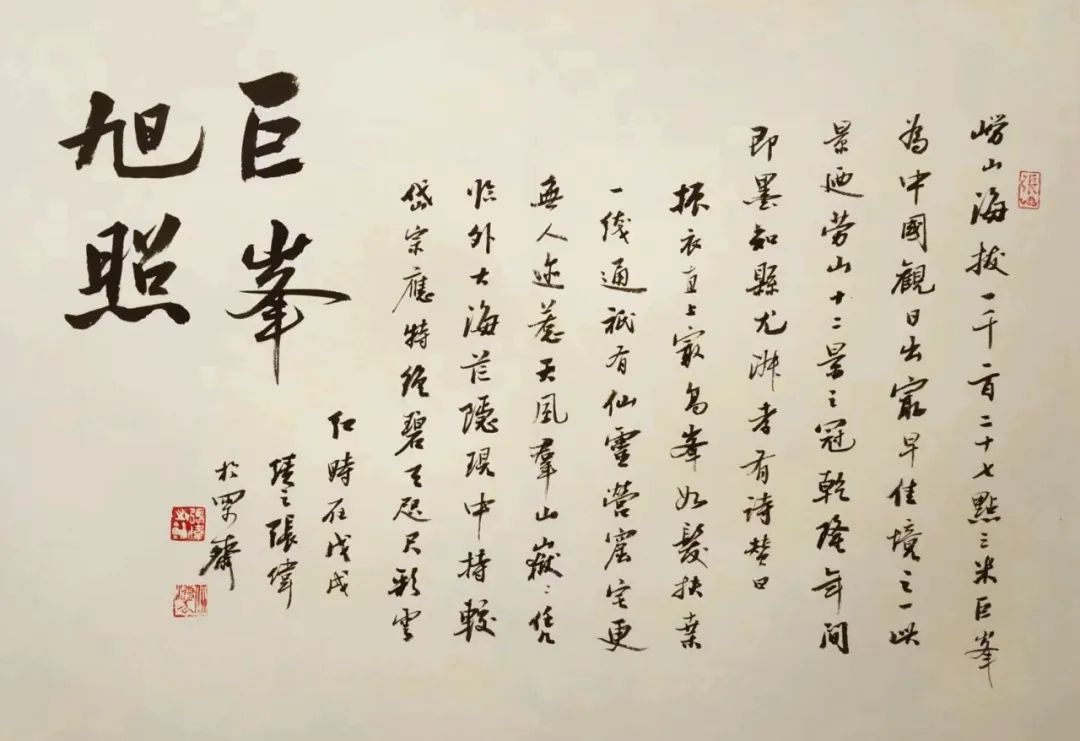 嶗山海拔一千一百二十七點三米巨峯
為中國觀日出最早佳境之一此
景廼勞山十二景之冠乾隆年間
即墨知縣尤淑孝有詩贊曰
振衣直上最高峯如髮扶桑
一綫通祇有仙靈營窟宅更
無人迹惹天風羣山嶽〻凭
臨外大海茫隱現中持較
岱宗應特絕碧天咫尺彩雲
紅時在戊戌
之張偉
於罘齋
巨峯
旭照